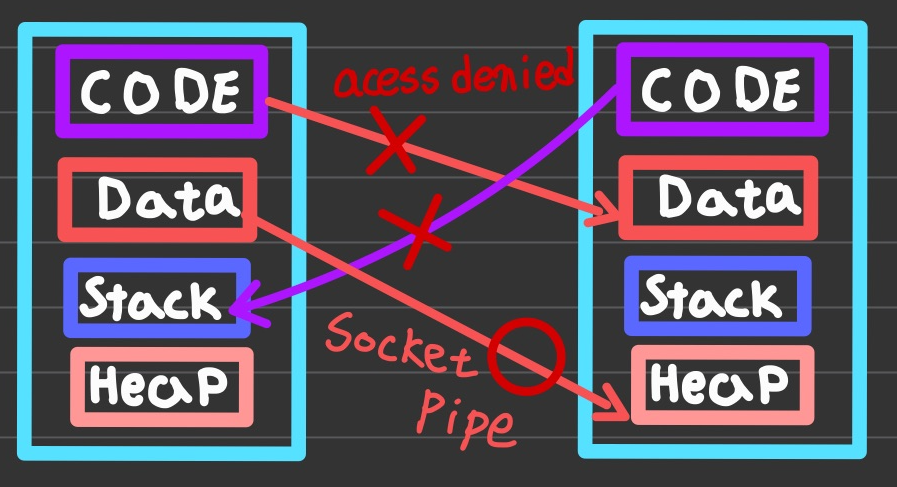 CODE
Data
Stack
Heap
acess denied
Socket
Pipe
CODE
Data
Stack
Heap